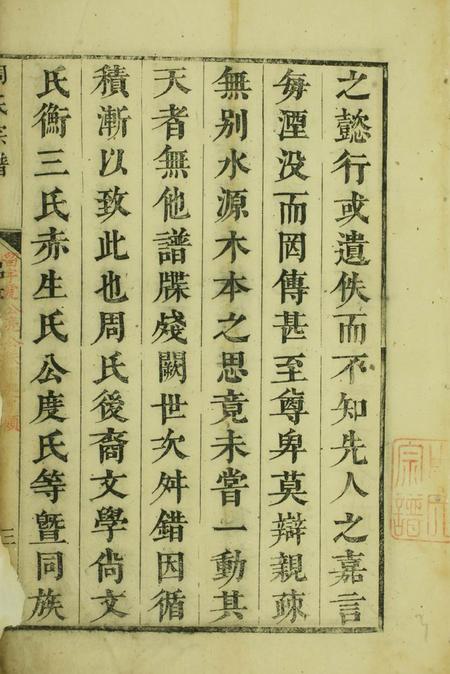 之懿行或遺佚而不知先人之嘉言
每湮没而罔傳甚至尊卑莫辯親疎
無别水源木本之思竟未嘗一動其
天者無他譜牒殘闕世次舛錯因循
積漸以致此也周氏後裔文學尙文
氏衡三氏赤生氏公度氏等暨同族
周氏宗譜
三
宗譜